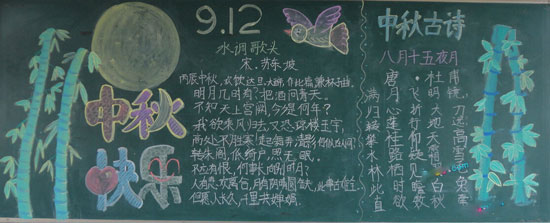 中秋
快乐
9.12
水调歌头
宋.苏东坡
丙辰中秋,欢饮达旦,大醉,作此篇,兼怀子由.
明月几时有?把酒问青天.
不知天上宫阙,今是何年?
我欲乘风归去,又恐琼楼玉宇,
高处不胜寒.起舞弄影,何似在人间
转朱阁,低绮户,照无眠.
不应有恨,何事长向别时圆?
人有悲欢离合,月有阴晴圆缺,此事古难全.
但愿人长久,千里共婵娟.
中秋古诗
八月十五夜月
唐·杜甫
满月飞明镜,
归心折大刀.
转蓬行地远,
攀桂仰天高.
水路疑霜雪,
林栖见羽毛.
此时瞻白兔,
直欲数秋毫.